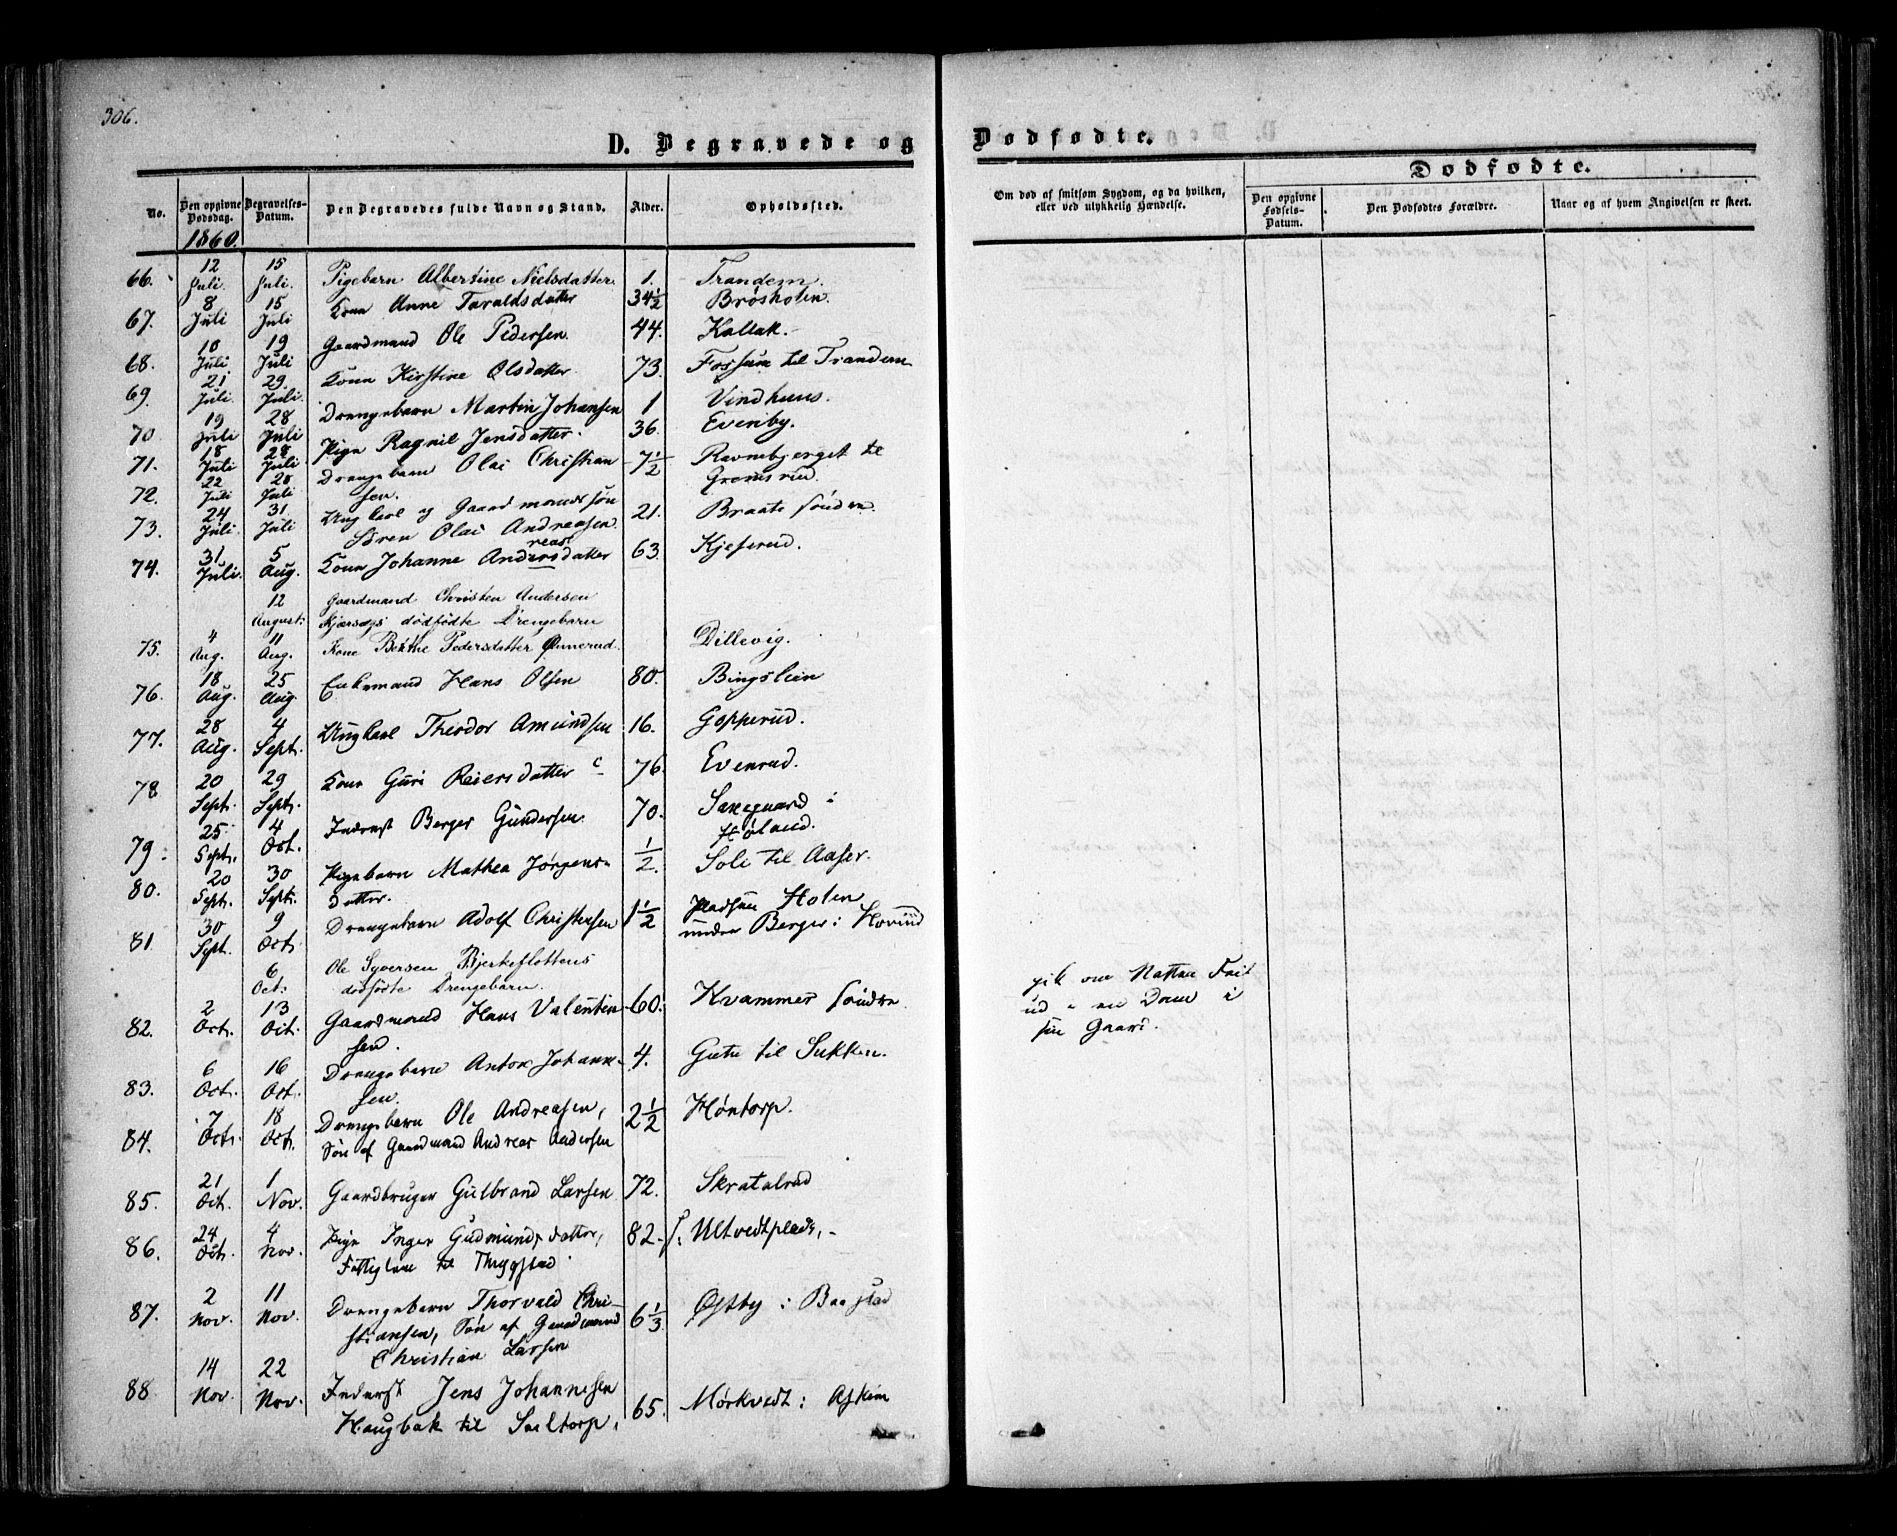 306.
D. Begravede og Dødfødte.
Dødfødte.
No.
Den opgivne Dødsdag.
Begravelses-Datum.
Den Begravedes fulde Navn og Stand.
Alder.
Opholdssted.
Om død af smitsom Sygdom, og da hvilken,
eller ved ulykkelig Hændelse.
Den opgivne Fødsels-Datum.
Den Dødfødtes Forældre.
Naar og af hvem Angivelsen er skeet.
1860.
66. 12 Juli. 15 Juli. Pigebarn Albertine Nielsdatter. 1. Trandem.
67. 8 Juli 15 Juli Kone Anne Taraldsdatter 34½ Brøsholen.
68. 10 Juli 19 Juli Gaardmand Ole Pedersen. 44. Kallak.
69. 21 Juli 29. Juli. Kone Kirstine Olsdatter. 73. Fossum til Trandem
70. 19 Juli 28 Juli Drengebarn Martin Johansen 1 Vindhuus.
71. 18 Juli 28 Juli Pige Ragnil Jensdatter. 36. Evenby.
72. 22 Juli 28 Juli Drengebarn Olai Christian
sen. 7½ Ravnebjerget til
Gremsrud.
73. 24 Juli. 31 Juli Ungkarl og Gaardmandssøn
Søren Olai Andreasen. 21. Braate søndre.
74. 31 Juli. 5 Aug. Kone Johanne Andersdatter 63. Kjeserud.
reas
12 August: Gaardmand Christen Andersen
Kjærsegs dødfødte Drengebarn
75. 4 Aug. 11 Aug. Kone Berthe Pedersdatter Gunnerud. Dillevig.
76. 18 Aug. 25 Aug. Enkemand Hans Olsen 80. Bingslien
77. 28 Aug. 4 Sept. Ungkarl Theodor Amundsen 16. Gopperud.
78 20 Sept. 29 Sept. Kone Guri Reiersdatter 76. Evenrud.
79. 25 Sept. 4 Oct. Inderst Berger Gundersen. 70. Sanguard i
Høland.
80. 20 Sept. 30 Sept. Pigebarn Mathea Jørgens-
datter. ½. Soli til Aaser.
81 30 Sept. 9 Oct. Drengebarn Adolf Christensen 1½ Pladsen Holen
under Berger i Hovind
6 Oct: Ole Syversen Bjerkeflottens
dødfødte Drengebarn.
82. 2 Oct. 13 Oct. Gaardmand Hans Valentin
sen. 60. Kvammer søndre
gik om Natten
ud i en Dam i
sin Gaard.
83. 6 Oct. 16 Oct. Drengebarn Anton Johann-
sen. 4. Gutu til Sukken.
84. 7 Oct. 18 Oct. Drengebarn Ole Andreasen,
Søn af Gaardmand Andreas Andersen 2½ Høntorp.
85. 21 Oct. 1 Nov. Gaardbruger Gulbrand Larsen 72. Skratalrud
86. 24 Oct. 4 Nov. Pige Inger Gudmundsdatter,
Fattiglem til Thrygstad. 82. Ultvedtplads.
87. 2 Nov. 11 Nov. Drengebarn Thorvald Chri-
stiansen, Søn af Gaardmand
Christian Larsen 6⅓ Østby i Baastad
88. 14 Nov. 22 Nov. Inderst Jens Johannesen
Haugbak til Saltorp. 65. Mørkvedt i Askim